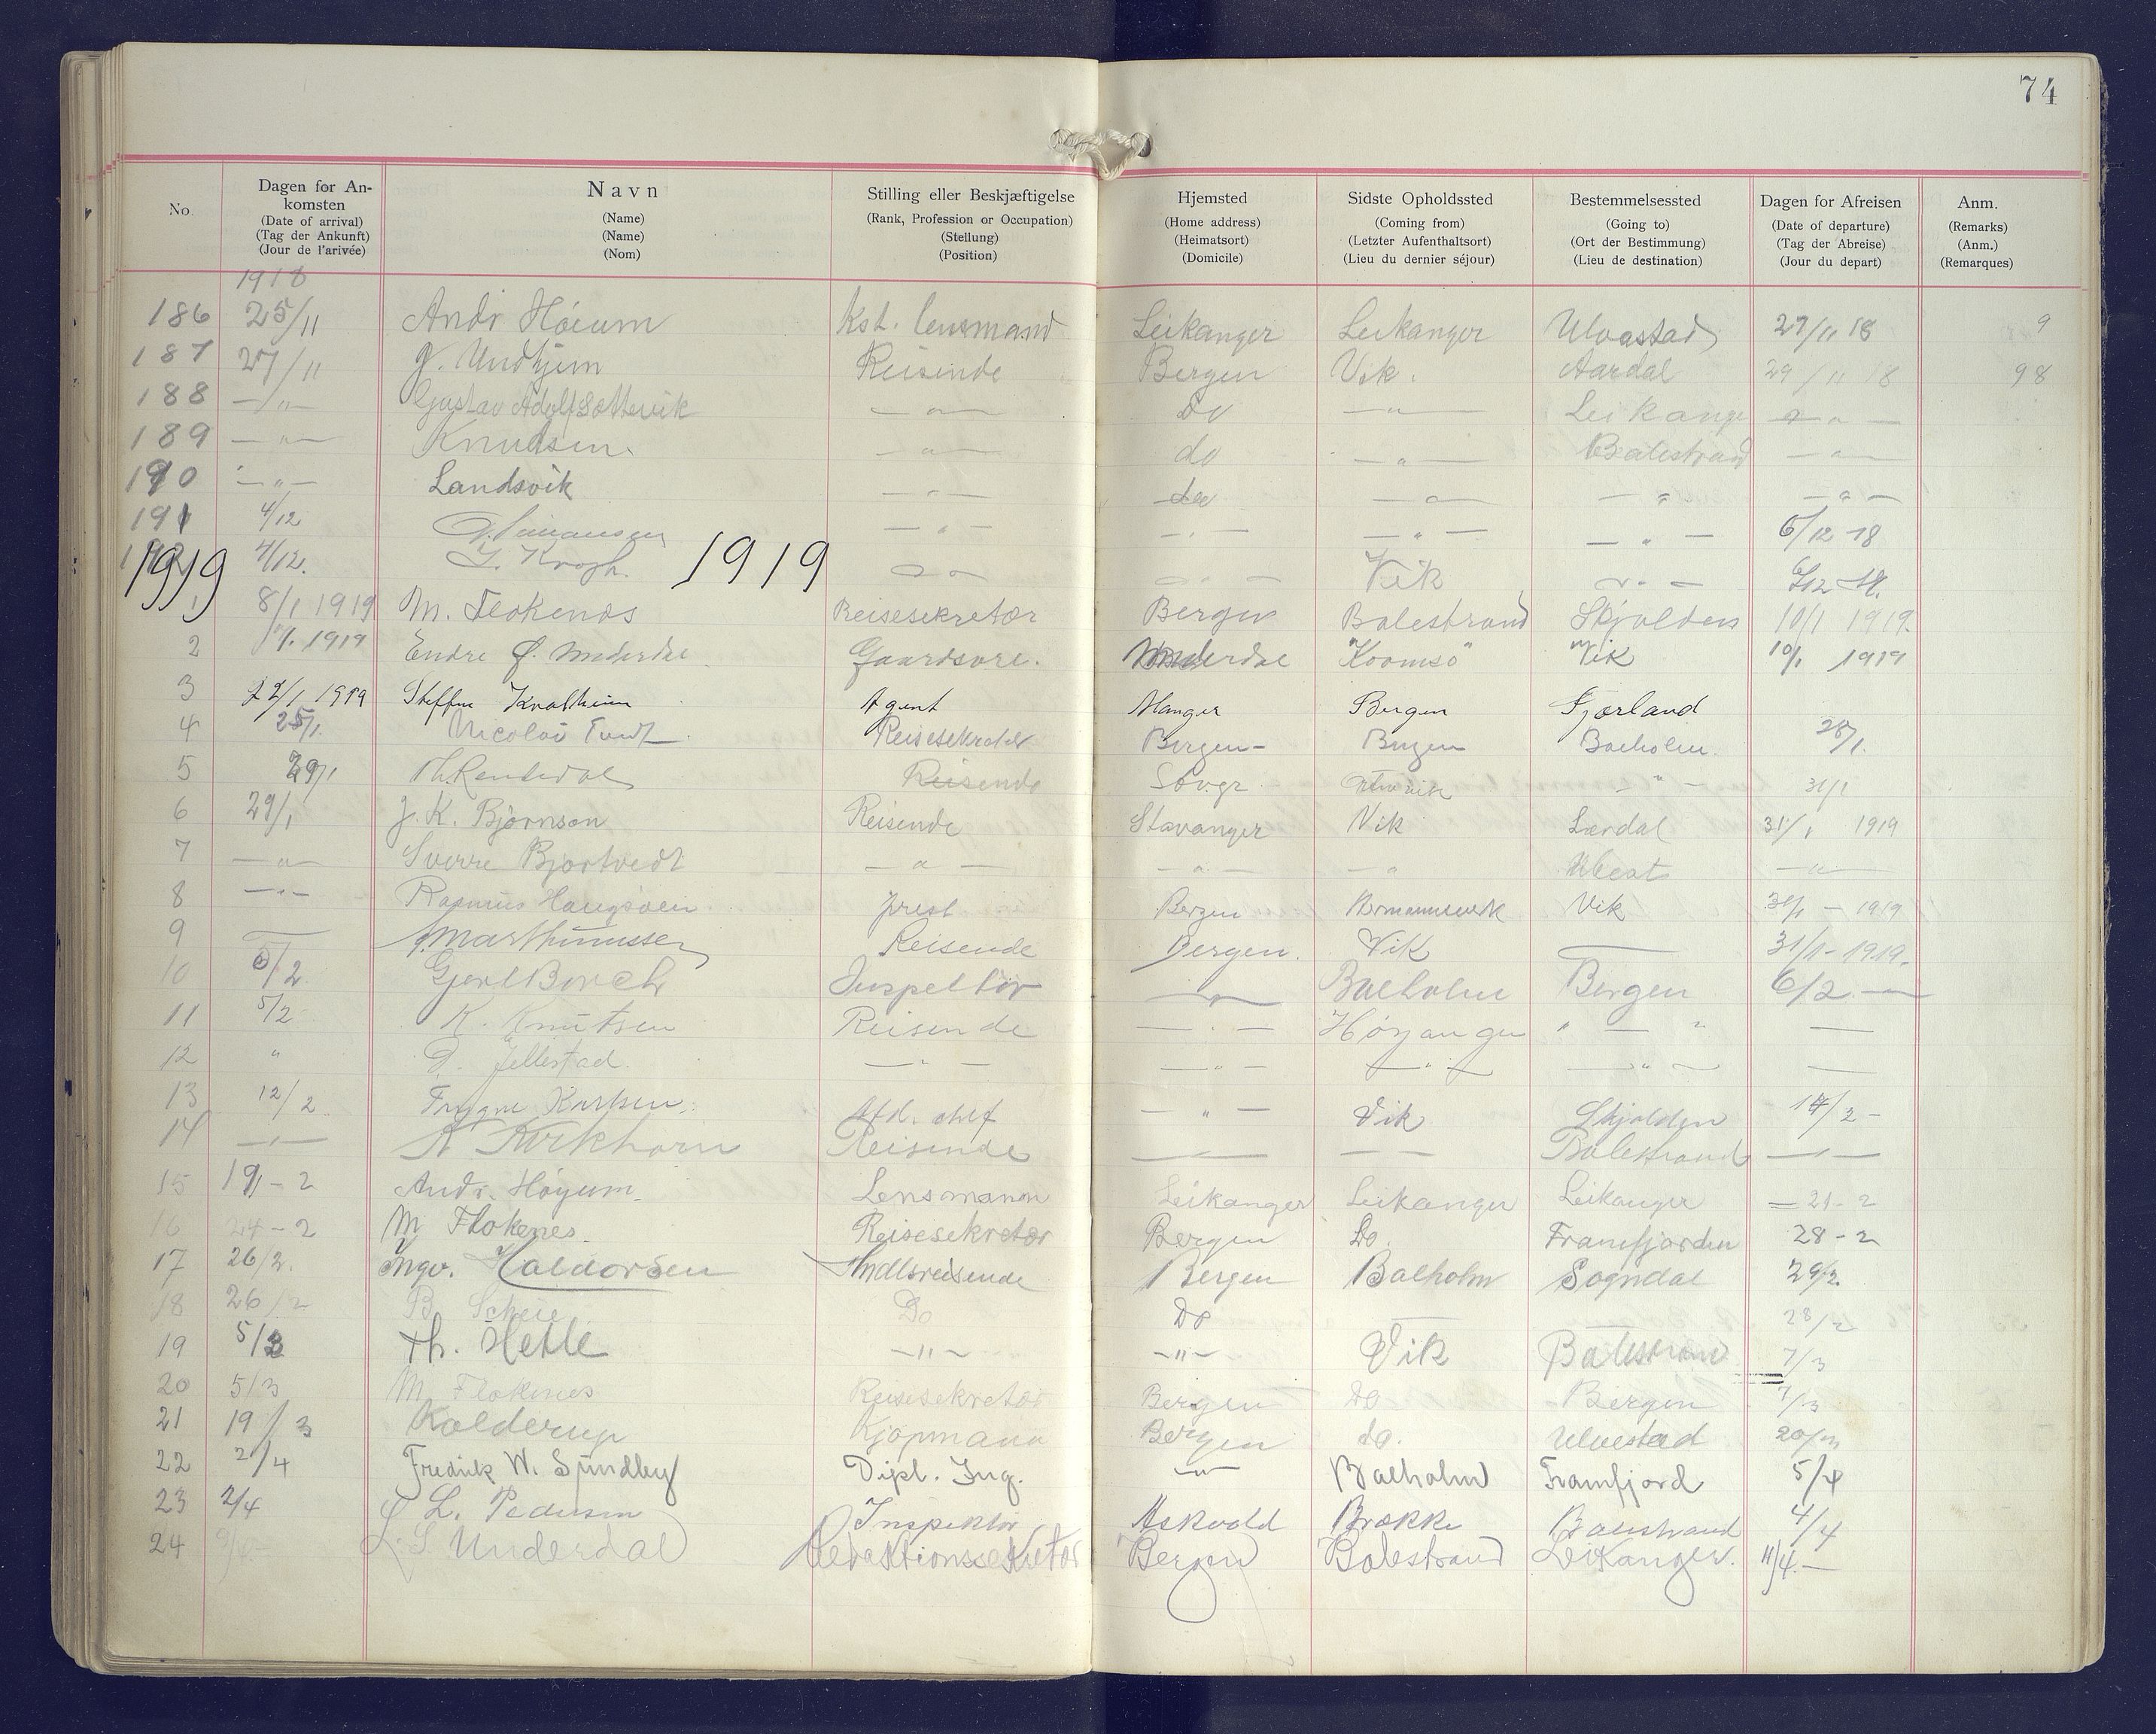 74
No. Dagen for Ankomsten (Date of arrival) (Tag der Ankunft) (Jour de l'arivée) Navn (Name) (Name) (Nom) Stilling eller Beskjæftigelse (Rank, Profession or Occupation) (Stellung) (Position) Hjemsted (Home address) (Heimatsort) (Domicile) Sidste Opholdssted (Coming from) (Letzter Aufenthaltsort) (Lieu du dernier séjour) Bestemmelsessted (Going to) (Ort der Bestimmung) (Lieu de destination) Dagen for Afreisen (Date of departure) (Tag der Abreise) (Jour du depart) Anm. (Remarks) (Anm.) (Remarques)
1918
186 25/11 Andr Høium Kst. lensmand Leikanger Leikanger Ulvastad 27/11 18 9
187 27/11 Undhjem Reisende Bergen Vik. Aardal 29/11 18 98
188 —"— Gustav Adolf Sottevik —"— do —"— Leikanger —"—
189 —"— Knudsen. —"— do —"— Balestrand —"—
190 —"— Landsvik —"— do —"— —"— —"—
191 4/12 —"— —"— —"— —"— 6/12 18
4/12. Krogh. —"— —"— Vik —"— 6/12
1919 1919
1 8/1 1919 M. Flokenes Reisesekretær Bergen Balestrand Skjolden 10/1 1919.
2 1919 Endre Ø. Underdal Gaardsbr. Underdal "Kromsø" Vik 10/1 1919
3 22/1 1919 Steffen Agent Manger Bergen Fjærland
4 25/1. Nicolai Reisesekretær Bergen- Bergen Baholm. 28/1.
5 29/1 Reisende —"— 31/1
6 29/1 J. K. Bjørnson Reisende Stavanger Vik Lærdal 31/1 1919
7 —"— Sverre Bjortvedt —"— —"— —"— —"—
8 —"— Rasmus Haugsøen prest Bergen Hermannsverk Vik 31/1 - 1919
9 Marthinussen Reisende Bergen. Vik 31/1-1919.
10 5/2 Gjert Borch Inspektør —"— Balholm Bergen 6/2 —
11 5/2 K. Knutsen Reisende —"— Høyanger " — " —
12 " Jellestad. —"— —"— —"— —"— —
13 12/2 Trygve Karlsen. Afd. chef —"— Vik Skjolden 14/2 -
14 —"— K Kirkhorn Reisende — — Balestrand —"—
15 19/-2 Andr. Høyum. Lensmann Leikanger Leikanger Leikanger 21-2
16 24-2 M Flokenes. Reisesekretær Bergen Do. Framfjorden 28-2
17 26/2. Ingv. Haldorsen Hndlsreisende Bergen Balholm Sogndal 29/2.
18 26/2 B Scheie Do Do 28/2
19 5/3 Th. Hetle —"— —"— Vik Balestrand 7/3
20 5/3 M. Flokenes Reisesekretær Bergen Do Bergen 7/3
21 19/3 Kalderup Kjøpmann Bergen do. Ulvestad 20/3
22 2/4 Fredrik W. Spindley Dipl. Ing. —"— Balholm Framfjord 5/4
23 2/4 L. Pedersen Inspektør Askvold Brække Balestrand 4/4
24 9/4- L. S. Underdal Redaktionssekretær Bergen Balestrand Leikanger. 11/4.—